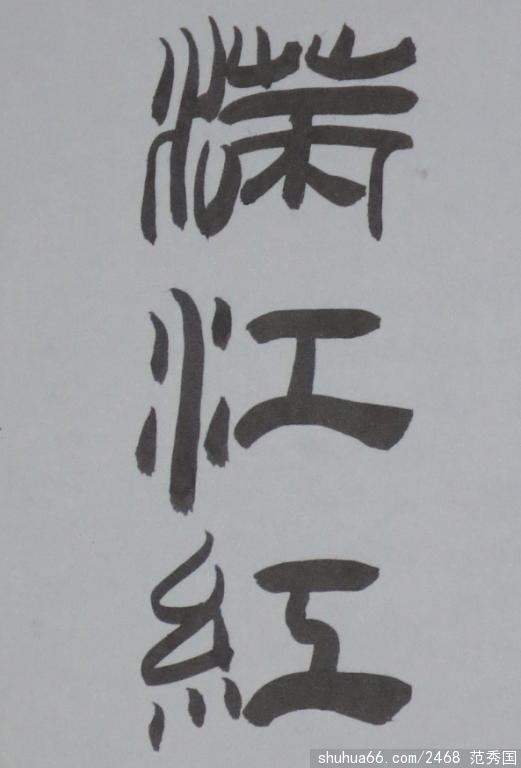 满江红
shuhua66.com/2468 范秀国